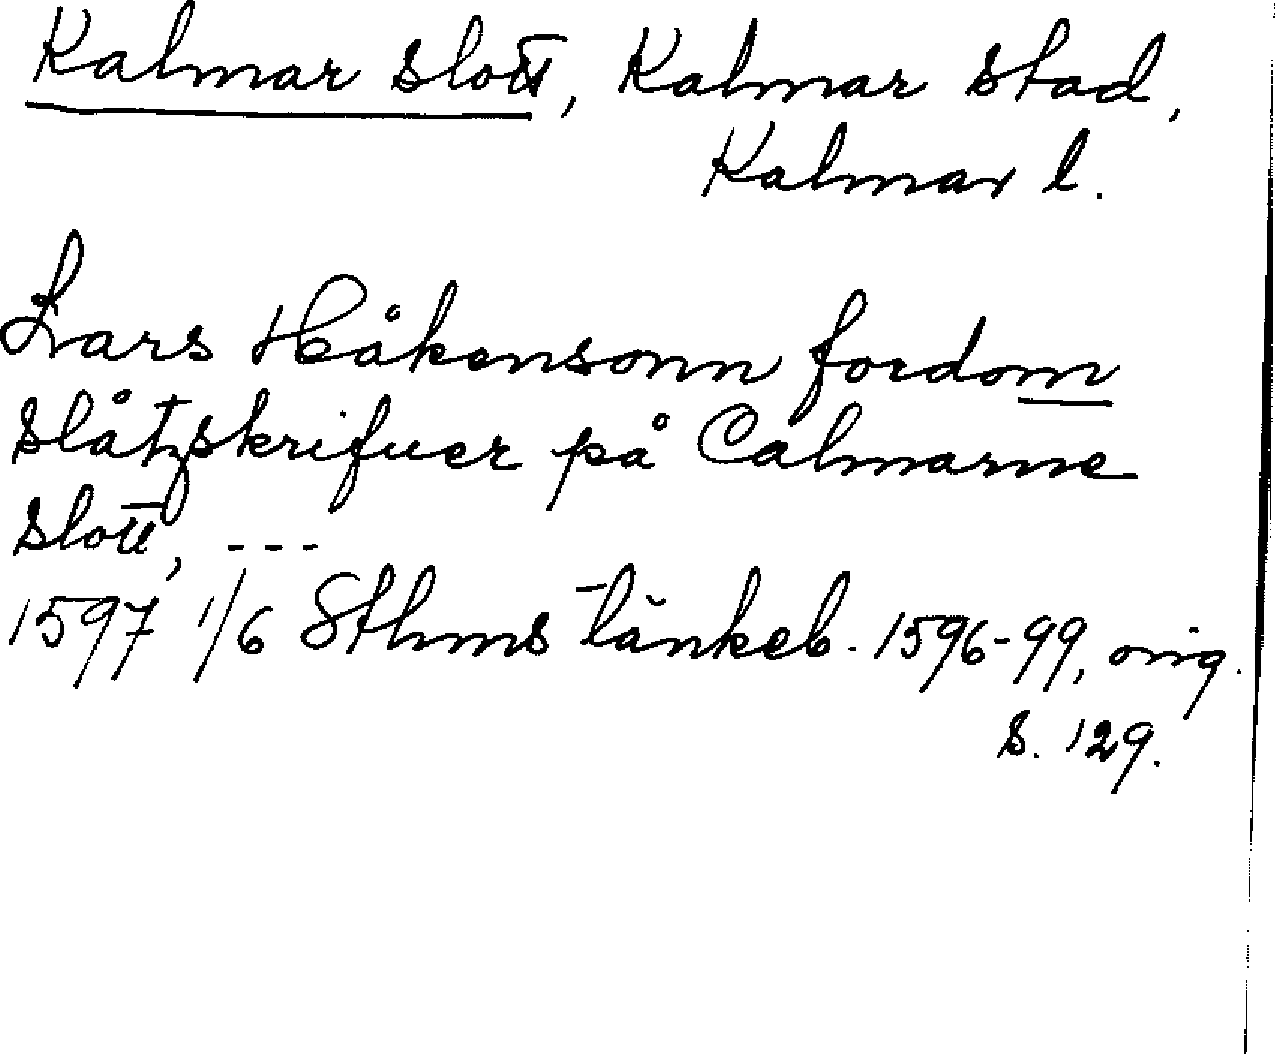 Kalmar slott, Kalmar stad,
Kalmar l.
Lars Håkensonn fordom
slåtzskrifuer på Calmarne
slott, ---
1597 1/6 Sthms tänkeb. 1596-99, orig.
s. 129.